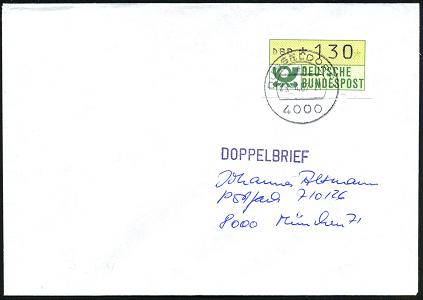 DBP *130
DEUTSCHE
BUNDESPOST
4000
DOPPELBRIEF
Johannes Altmann
Postfach 710126
8000 München 71